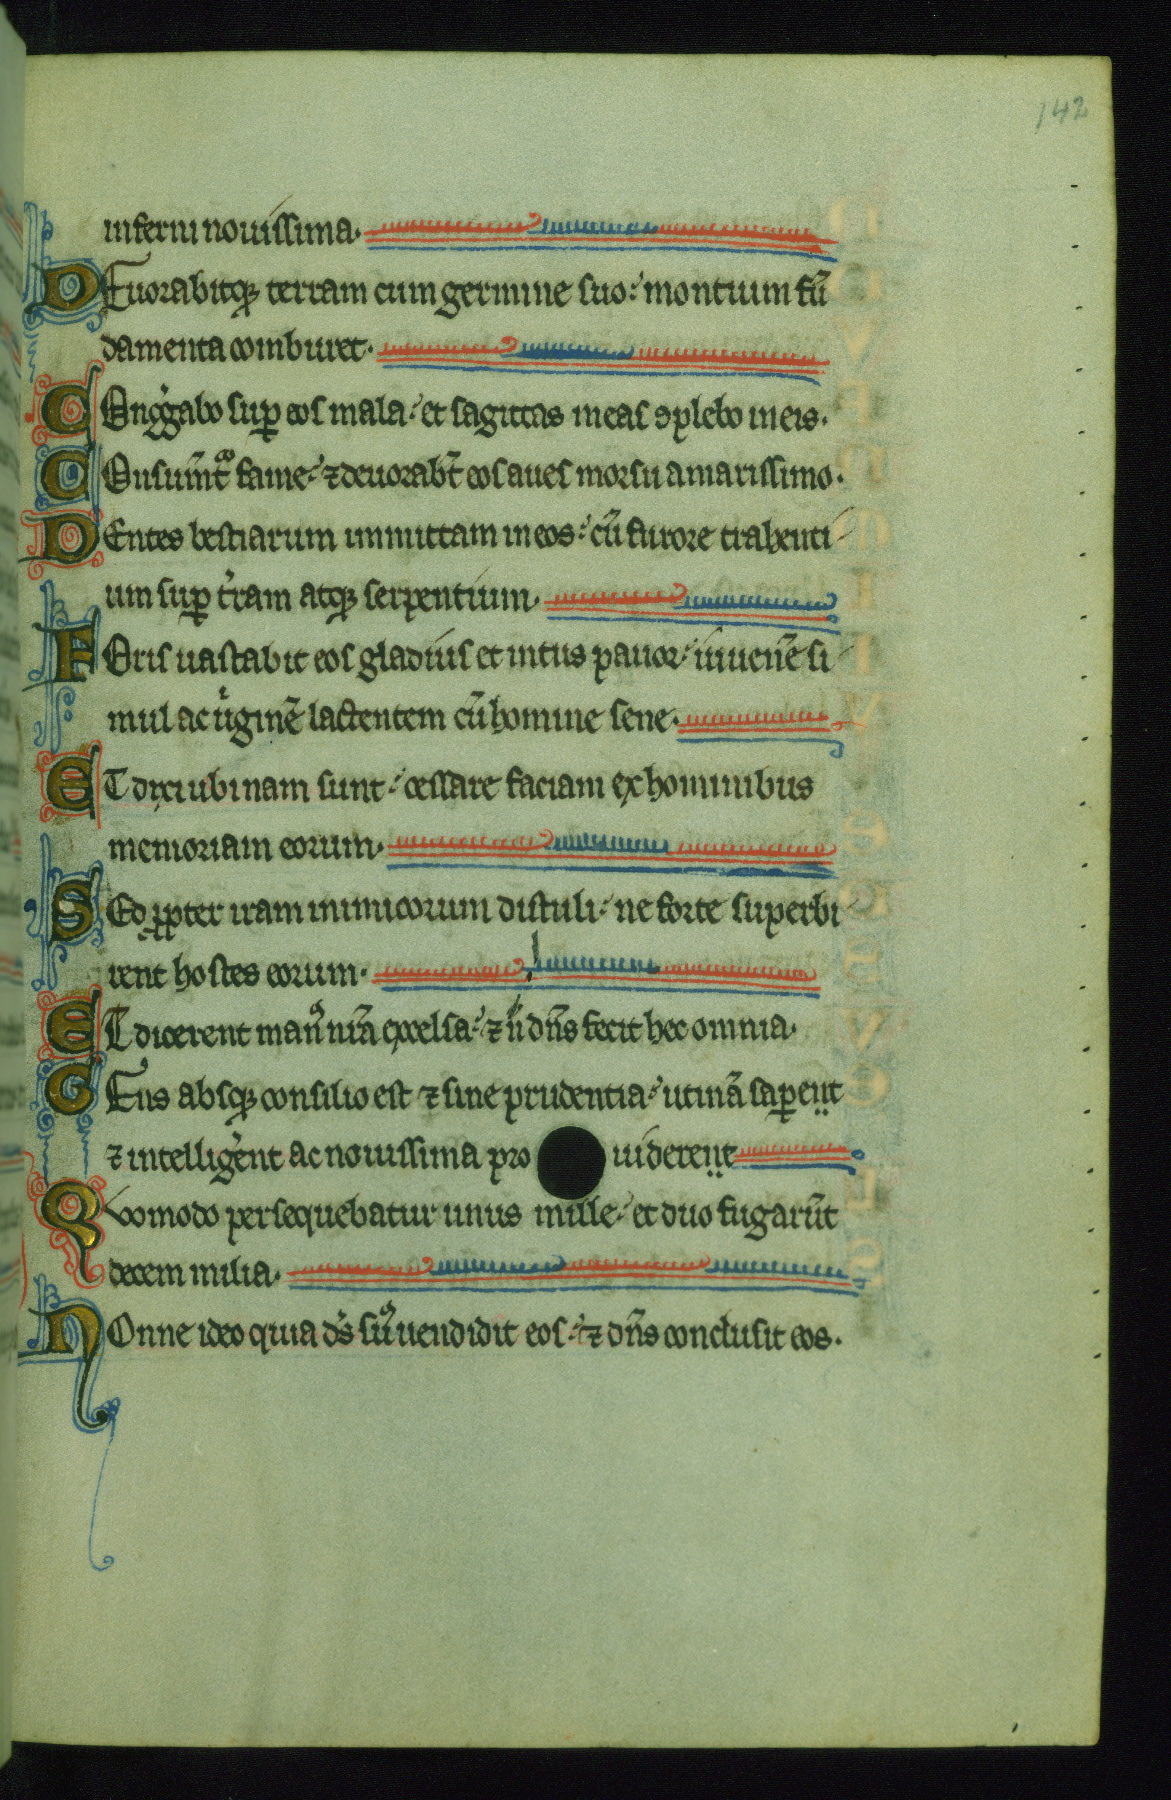 142
inferni nouissima.
DEuorabitqȝ terram cum germine suo: montium fū
damenta comburet.
COng̾gabo suꝑ eos mala: et sagittas meas ꝯplebo in eis.
COnsumēt͛ fame: ⁊ deuorabt̄ eos aues morsu amarissimo.
DEntes bestiarum immittam in eos: cū furore trahenti
um suꝑ t̾ram atqȝ serpentium.
FOris uastabit eos gladius et intus pauor: iuuenē si
mul ac ùginē lactentem cū homine sene.
ET dixi ubinam sunt: cessare faciam ex hominibus
memoriam eorum.
SEd ꝓpter iram inimicorum distuli: ne forte superbi
rent hostes eorum.
ET dicerent man᷒ nr̄a excelsa: ⁊ ñ dn̄s fecit hec omnia.
GEns absqȝ consilio est ⁊ sine prudentia: utinā saꝑent
⁊ intellig̾ent ac nouissima pro uiderent
QUomodo persequebatur unus mille: et duo fugarūt
decem milia.
NOnne ideo quia ds̄ su᷒ uendidit eos: ⁊ dn̄s conclusit eos.